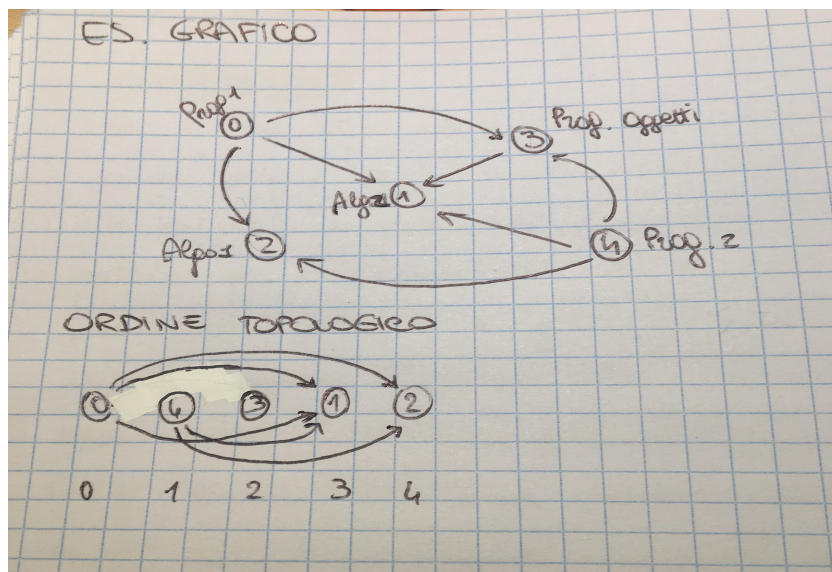 ES. GRAFICO
Prog 1
0
3 Prog. Oggetti
1
2
4 Prog. 2
ORDINE TOPOLOGICO
0 4 3 1 2
0 1 2 3 4